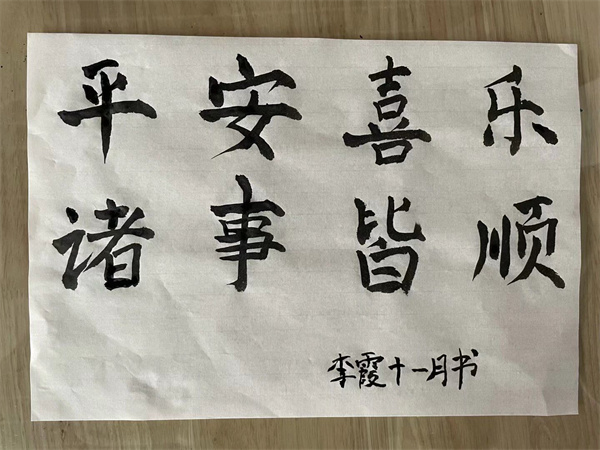 平安喜乐
诸事皆顺
李霞十一月书